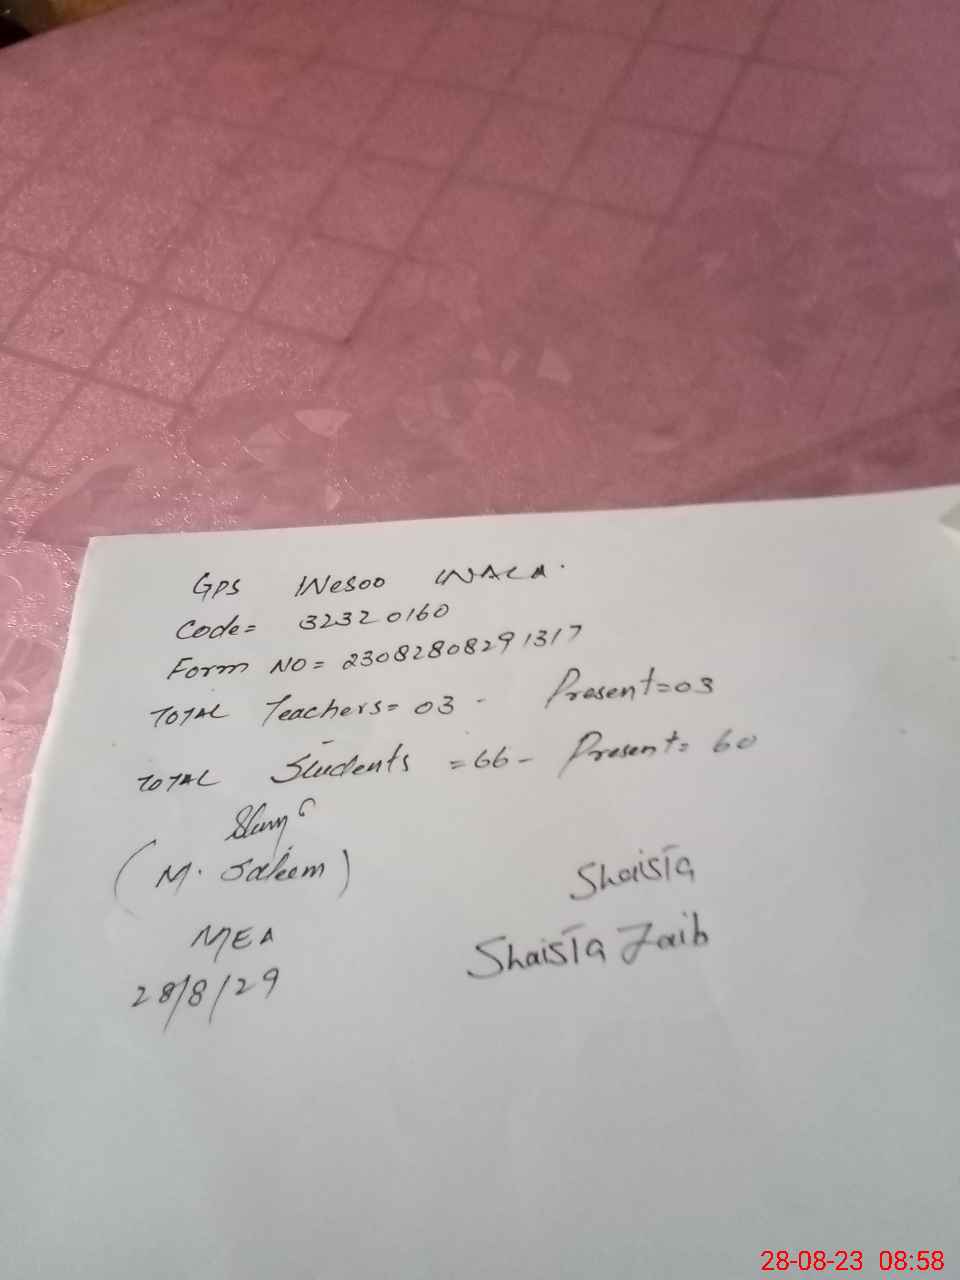 GPS Wesoo WALA.
Code= 32320160
Form NO= 23082808291317
TOTAL Teachers= 03 - Present=03
TOTAL Students =66- Present= 60
(M. Saleem)
Shaista
MEA
Shaista Zaib
28/8/29
28-08-23 08:58